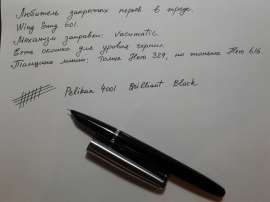 Любитель закрытых перьев в треде.
Wing Sung 601.
Механизм заправки: Vacumatic
Есть окошко для уровня чернил
Толщина линии: Толще Hero 329, но тоньше Hero 616.
Pelikan 4001 Brilliant Black